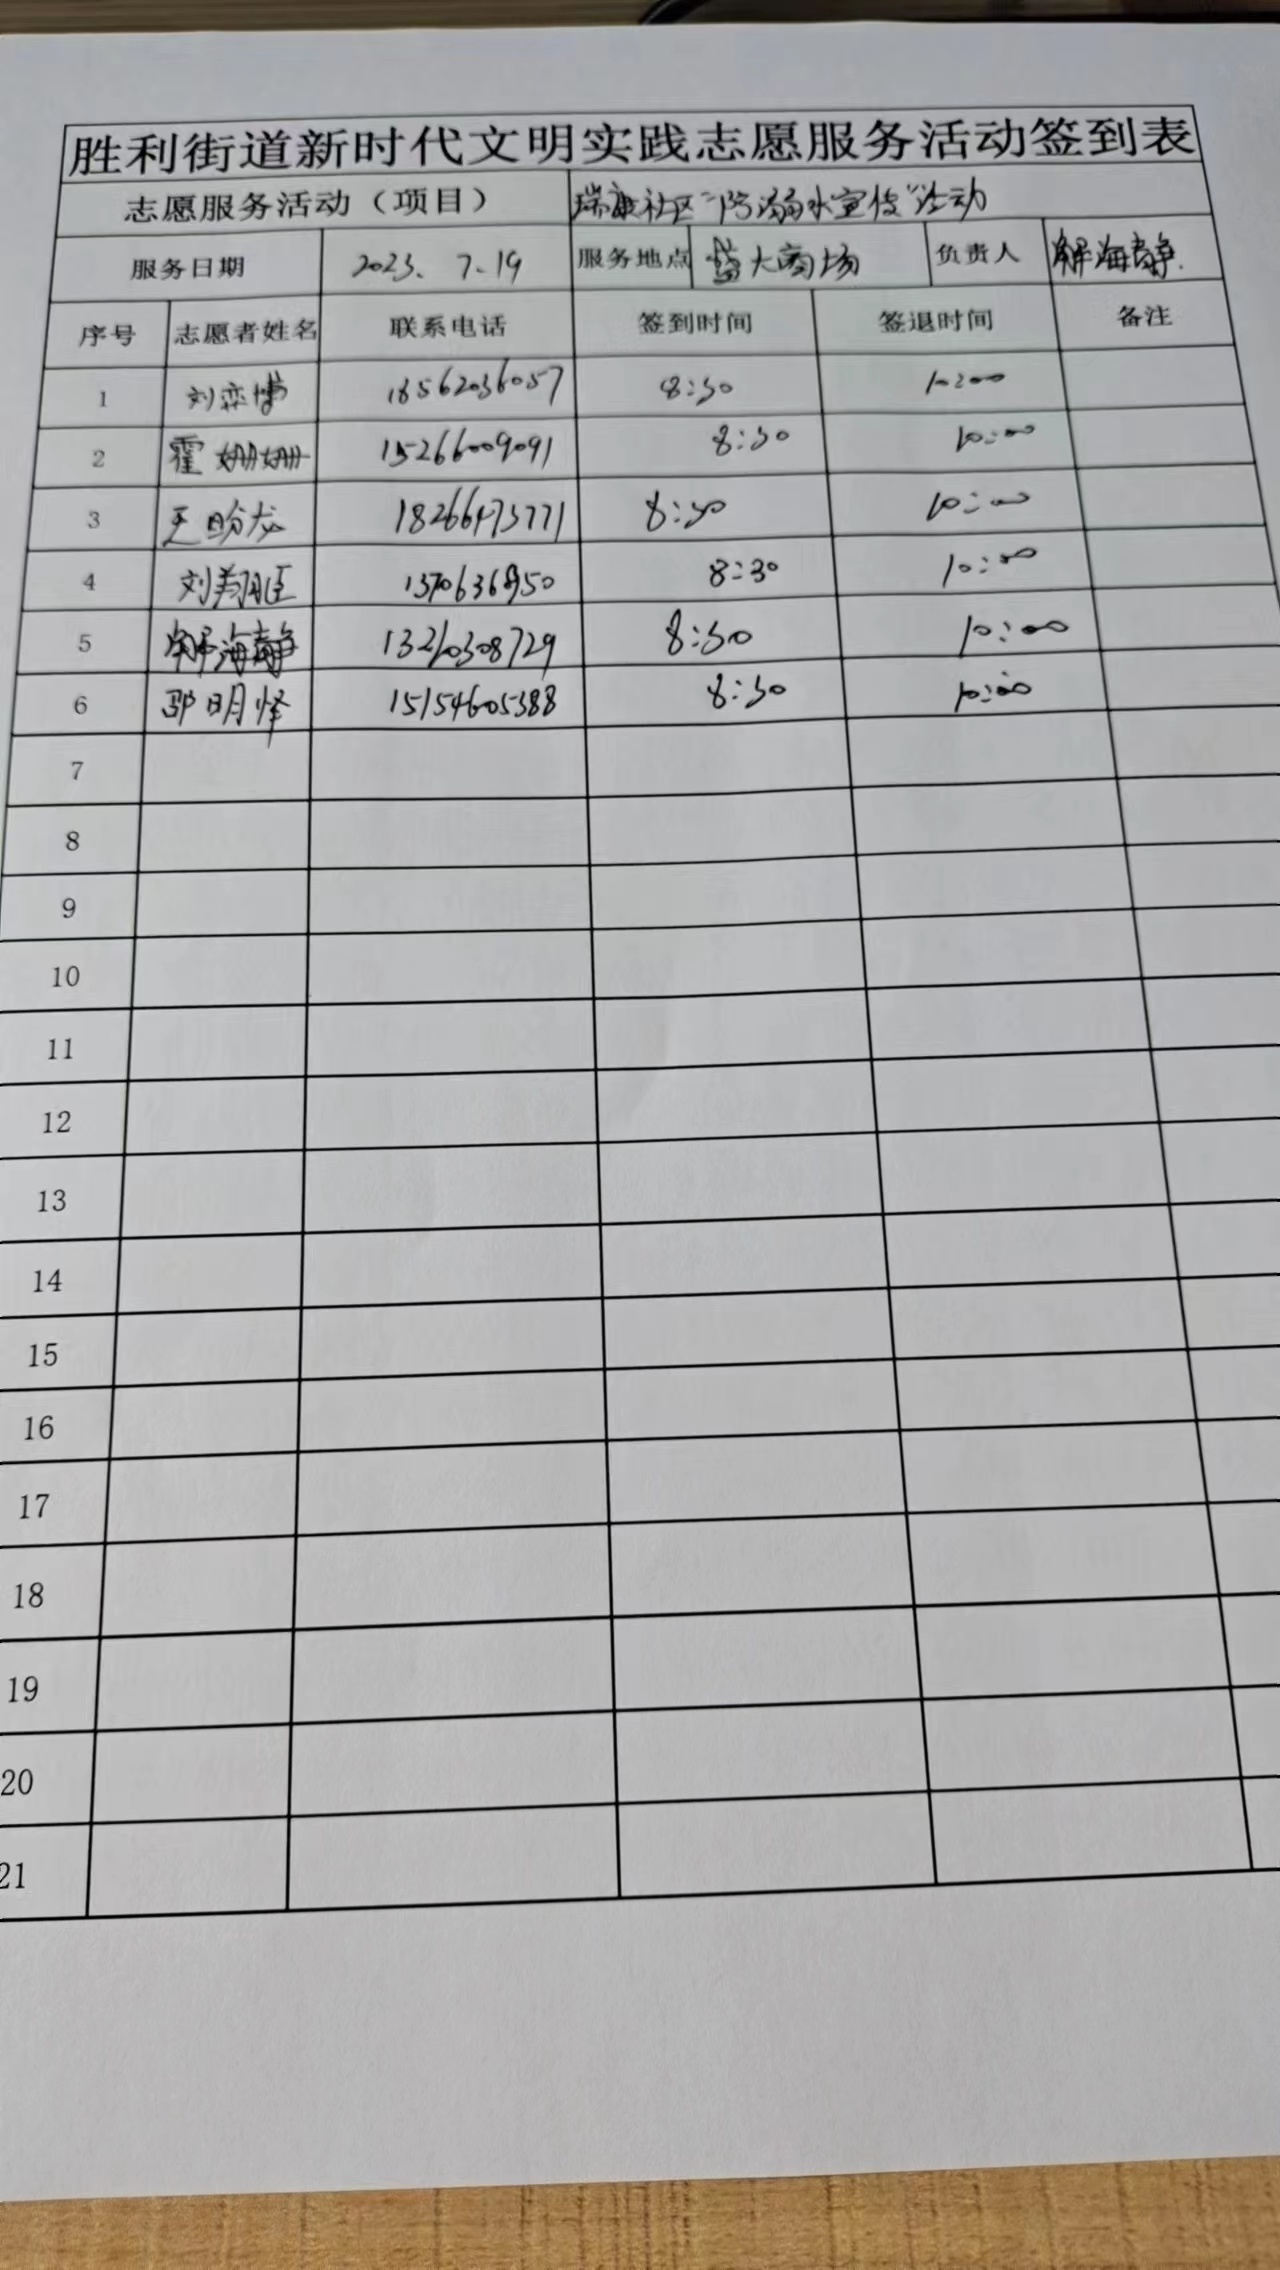 胜利街道新时代文明实践志愿服务活动签到表
志愿服务活动（项目） 瑞康社区“防溺水宣传”活动
服务日期 2023. 7.19 服务地点 盛大商场 负责人 解海静
序号 志愿者姓名 联系电话 签到时间 签退时间 备注
1 刘奕博 18562036057 8:30 10:00
2 霍姗姗 15266009091 8:30 10:00
3 王盼龙 18266473771 8:30 10:00
4 刘 8:30 10:00
5 解海静 8:30 10:00
6 邵明怿 15154605388 8:30 10:00
7
8
9
10
11
12
13
14
15
16
17
18
19
20
21